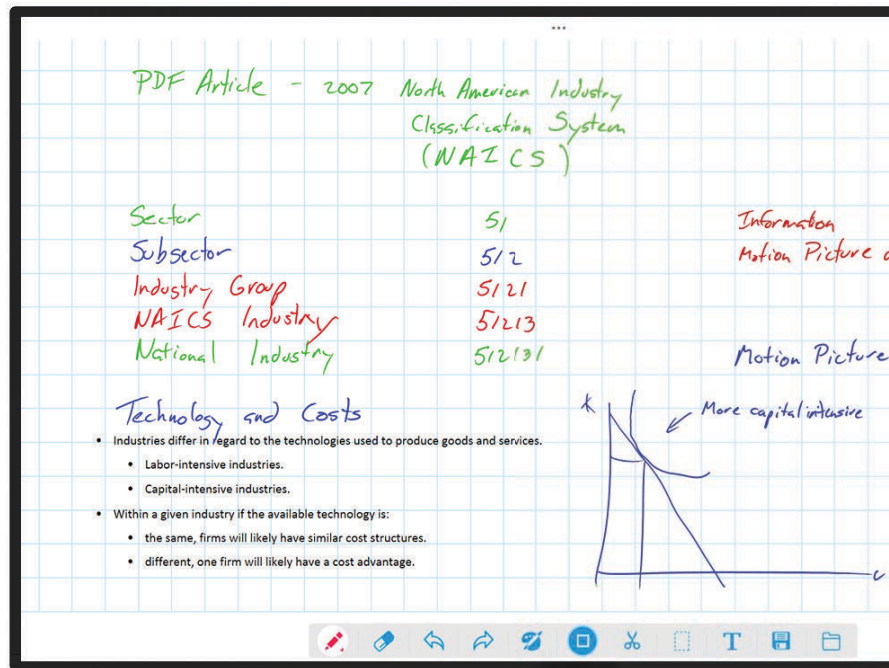 PDF Article - 2007 North American Industry
Classification System
(NAICS)
Sector 51 Information
Subsector 512 Motion Picture
Industry Group 5121
NAICS Industry 51213
National Industry 512131 Motion Picture
Technology and Costs
K
More capital intensive
• Industries differ in regard to the technologies used to produce goods and services.
• Labor-intensive industries.
• Capital-intensive industries.
• Within a given industry if the available technology is:
• the same, firms will likely have similar cost structures.
• different, one firm will likely have a cost advantage.
T